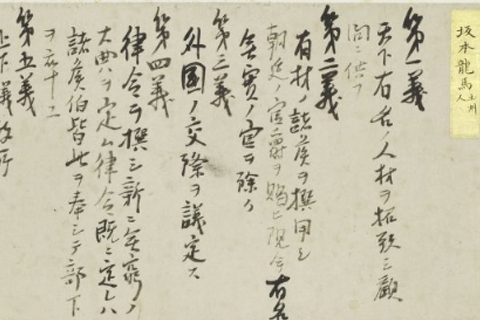 坂本龍馬 土州人
第一義
天下有名ノ人材ヲ招致シ顧
問ニ供フ
第二義
有材ノ諸侯ヲ撰用シ
朝廷ノ官爵ヲ賜ヒ現今有名
無実ノ官ヲ除ク
第三義
外国ノ交際ヲ議定ス
第四義
律令ヲ撰シ新ニ無窮ノ
大典ヲ定ム律令既ニ定レハ
諸侯伯皆此ヲ奉シテ部下
ヲ率ユ
第五義
上下議政所